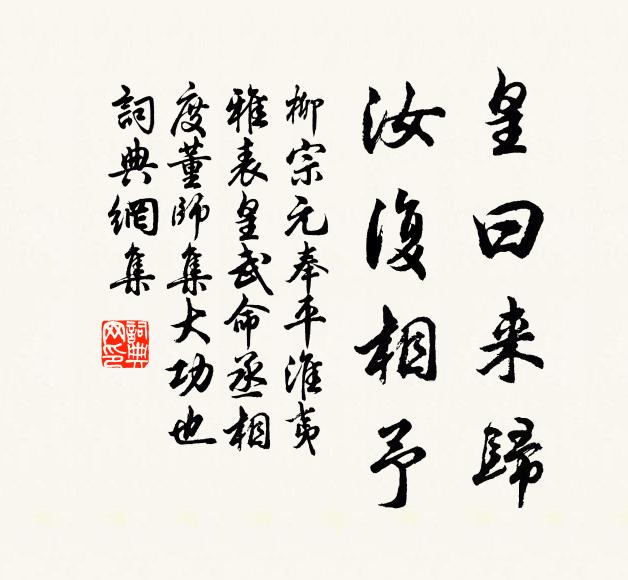 皇曰来歸
汝復相予
柳宗元奉平淮夷
雅表皇武命丞相
度董師集大功也
詞典網集
詞典網印